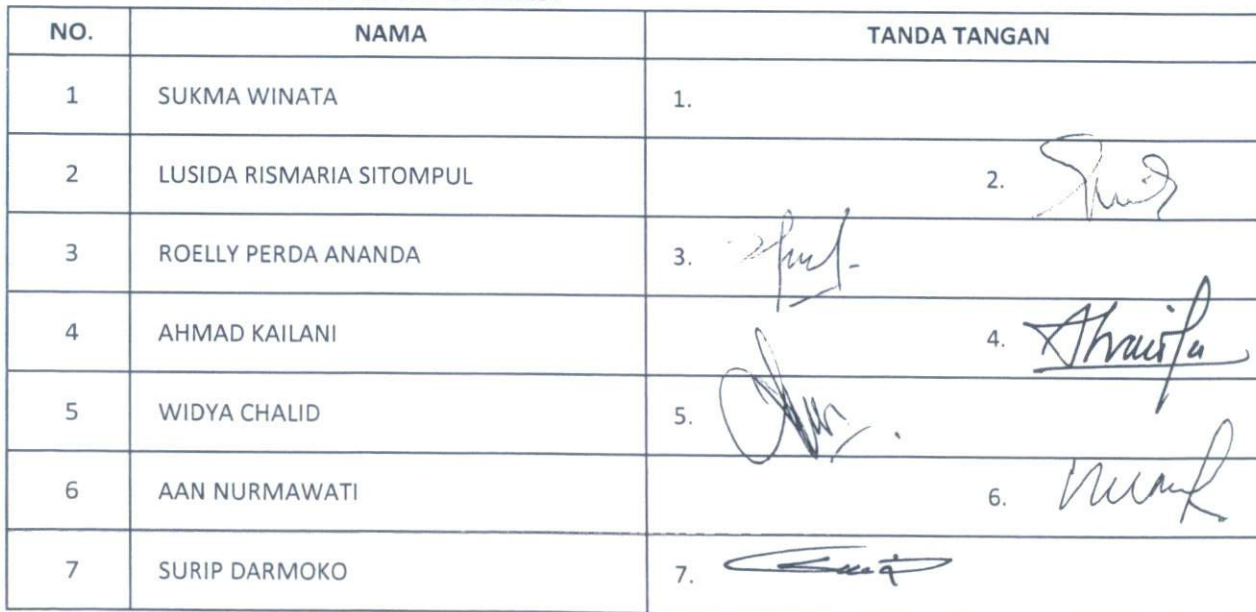 NO. NAMA TANDA TANGAN
1 SUKMA WINATA 1.
2 LUSIDA RISMARIA SITOMPUL 2.
3 ROELLY PERDA ANANDA 3.
4 AHMAD KAILANI 4.
5 WIDYA CHALID 5.
6 AAN NURMAWATI 6.
7 SURIP DARMOKO 7.